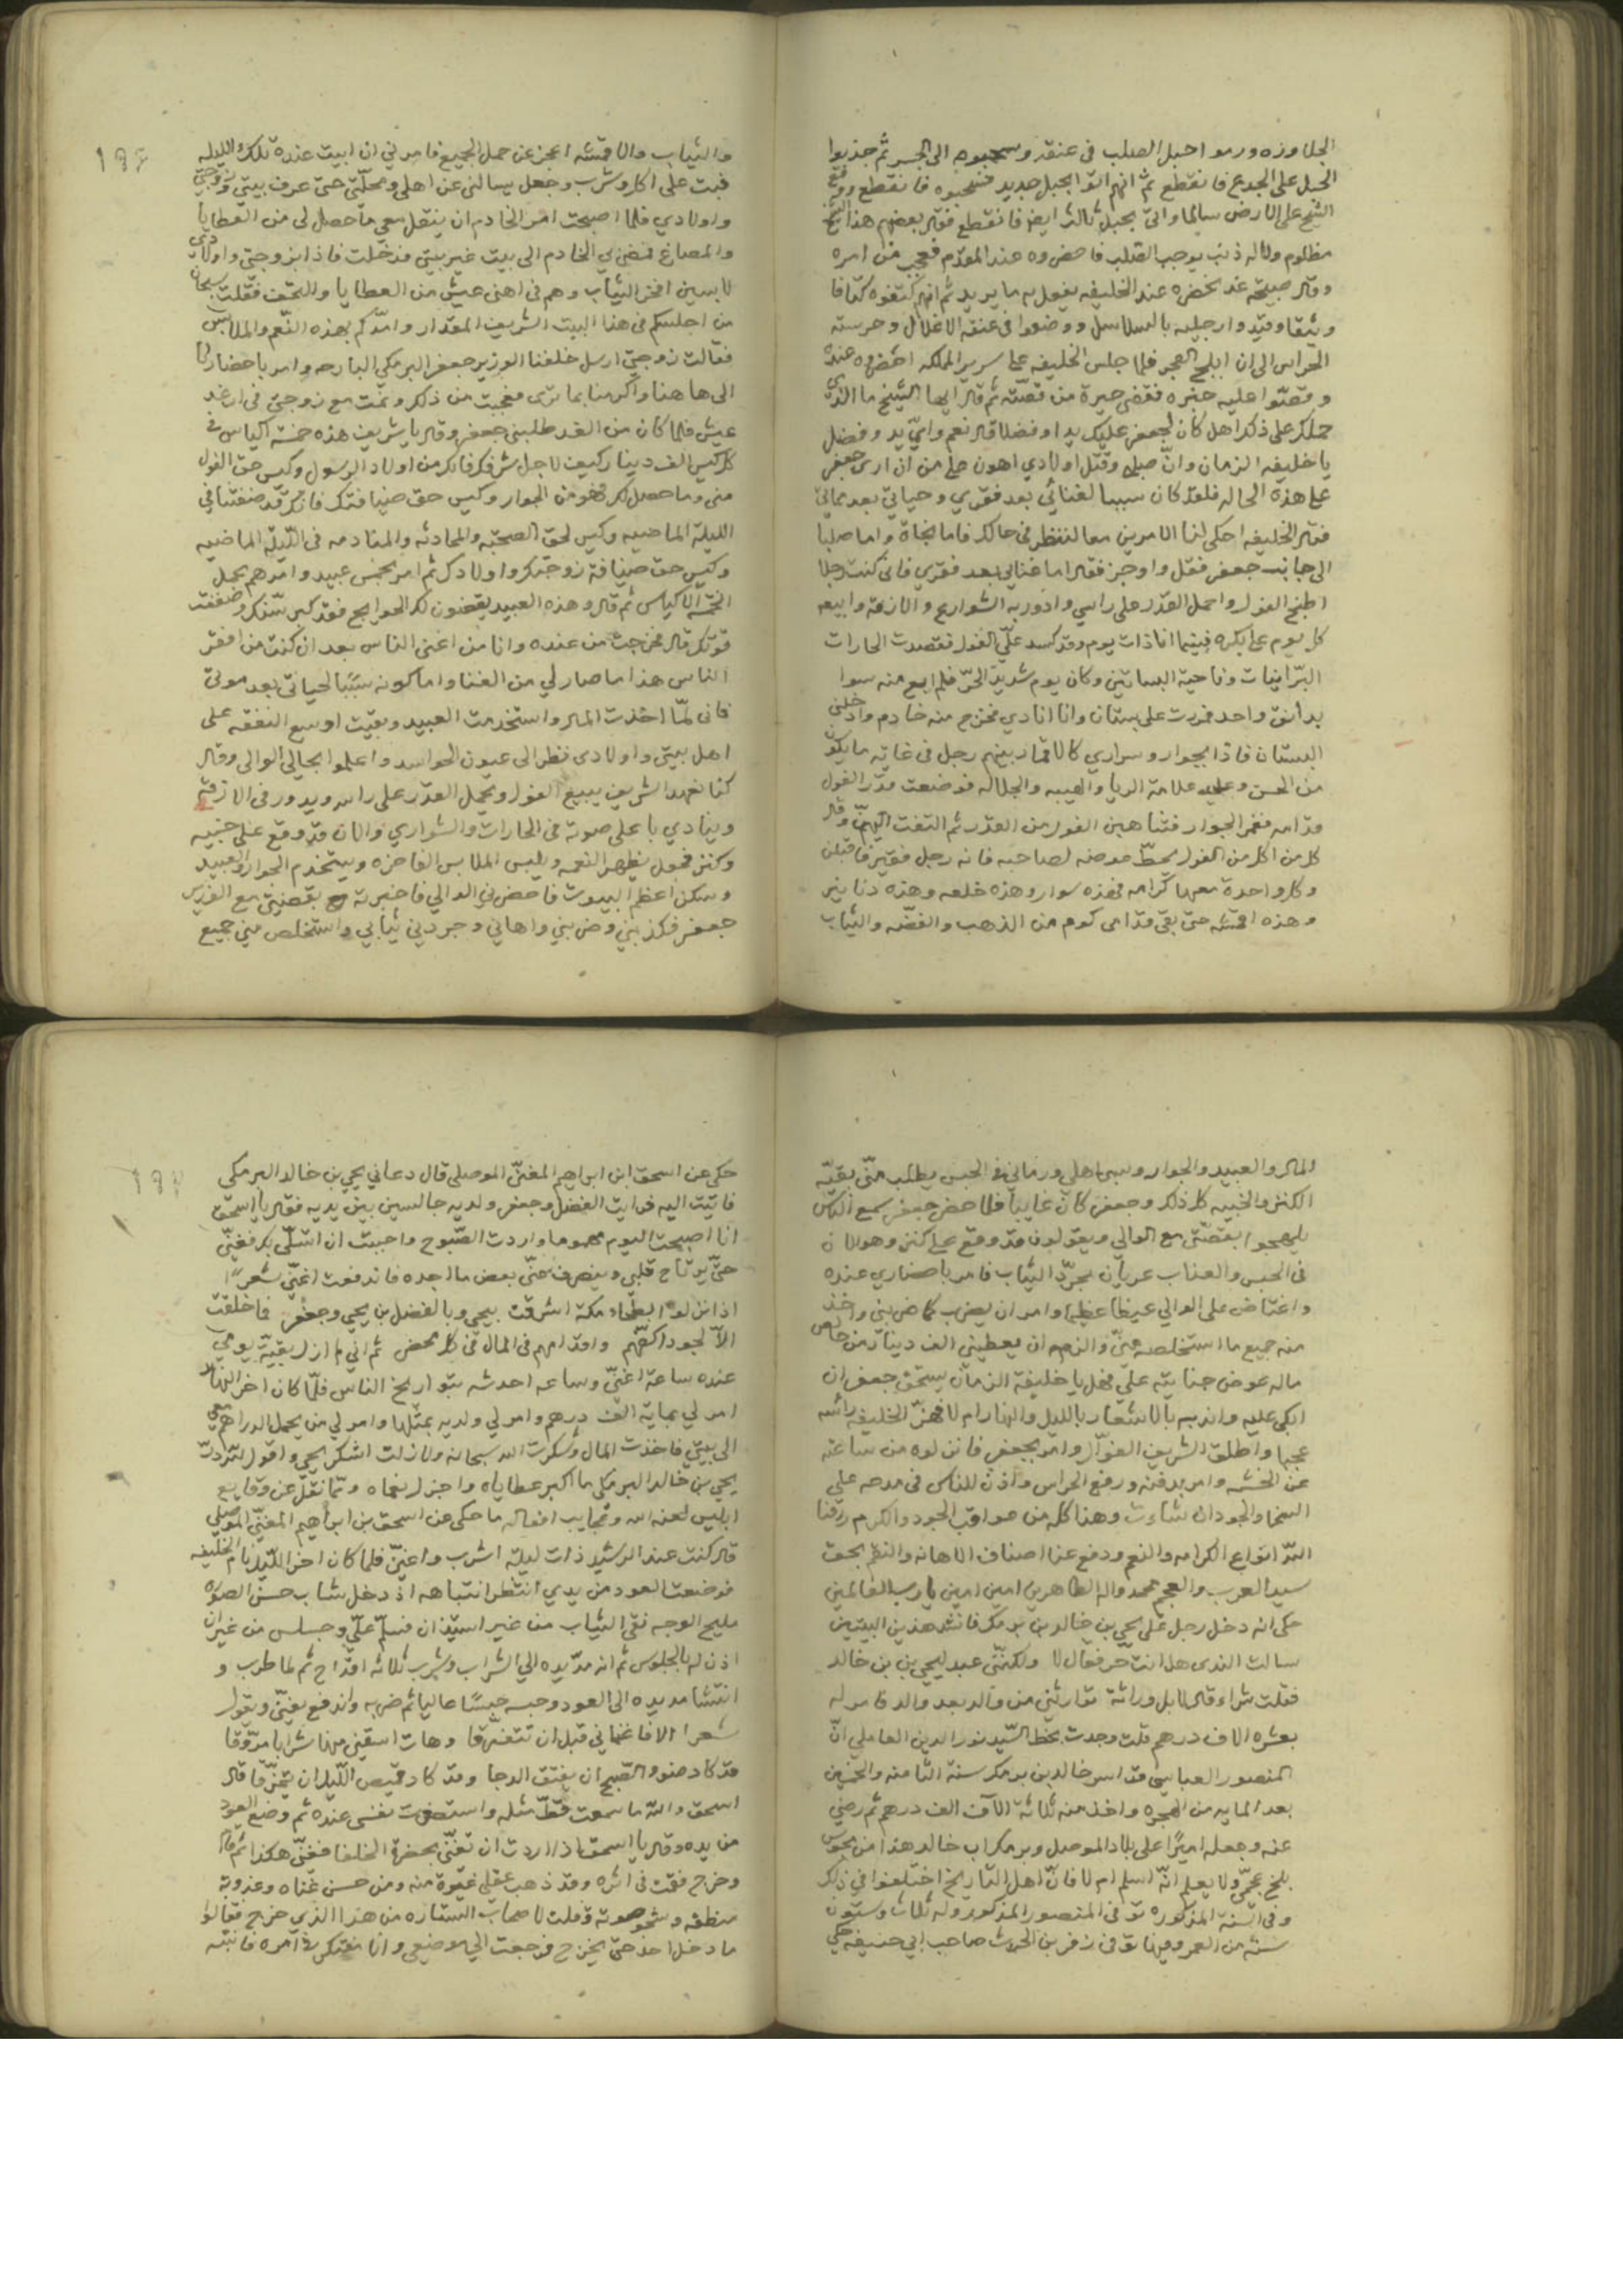 الجلاوزه ورموا حبل الصلب في عنقه وسحبوه الى الجسر ثم جذبوا
الحبل على الجدع فانقطع ثم انهم اتوا بحبل جديد فسحبوه فانقطع ووقع
الشيخ على الارض سالما واتي بحبل ثالث ايضا فانقطع فقال بعضهم هذا الشيخ
مظلوم ولا له ذنب يوجب الصلب فاحضروه عند المقدم فعجب من امره
وقال صبيحة غد نحضره عند الخليفه يفعل به ما يريد ثم انهم كتفوه كتافا
وثيقا وقيدوا رجليه بالسلاسل ووضعوا في عنقه الاغلال وحرسته
الحراس الى ان ابلج الفجر فلما جلس الخليفه على سرير الملكه احضروه عنده
وقصوا عليه خبره فقضى حيرة من قصته ثم قال ايها الشيخ ما الذي
حملك على ذلك اهل كان لجعفر عليك يدا وفضلا قال نعم واي يد وفضل
يا خليفه الزمان وان صلبي وقتل اولادي اهون علي من ان ارى جعفر
على هذه الحاله فلقد كان سببا لغنائي بعد فقري وحياتي بعد مماتي
فقال الخليفه احكي لنا الامرين معا لننظر في حالك فاما نجاة واما صلبا
الى جانب جعفر فقل واوجز فقال اما غنايي بعد فقري فاني كنت رجلا
اطبخ الفول واحمل القدر على راسي وادور به الشوارع والازقة وابيعه
كل يوم على بكره فبينما انا ذات يوم وقد كسد علي الفول فقصدت الحارات
البرانيات وناحية البساتين وكان يوم شديد الحر فلم ابع منه سوا
بدانق واحد فمررت على بستان وانا انادي فخرج منه خادم وادخلني
البستان فاذا بجوار وسراري كالاقمار بينهم رجل في غاية ما يكون
من الحسن وعليه علامة الريا والهيبه والجلاله فوضعت قدر الفول
قدامه فغمز الجوار فتناهبن الفول من القدر ثم التفت اليهن وقال
كل من اكل من الفول يحط عوضه لصاحبه فانه رجل فقير فاقبلن
وكل واحدة معها كرامه فهذه سوار وهذه خلعه وهذه دنانير
وهذه اقمشه حتى بقي قدامي كوم من الذهب والفضه والثياب
والثياب والاقمشه اعجز عن حمل الجميع فامرني ان ابيت عنده تلك الليله
فبت على اكل وشرب وجعل يسالني عن اهلي ومحلتي حتى عرف بيتي وزوجتي
واولادي فلما اصبحت امر الخادم ان ينقل معي ما حصل لي من العطايا
والمصاغ فمضى بي الخادم الى بيت غير بيتي فدخلت فاذا بزوجتي واولادي
لابسين افخر الثياب وهم في اهنى عيش من العطايا والتحف فقلت سبحان
من اجلسكم في هذا البيت الشريف المقدار وامدكم بهذه النعم والملابس
فقالت زوجتي ارسل خلفنا الوزير جعفر البرمكي البارحه وامر باحضارنا
الى ها هنا واكرمنا بما ترى فعجبت من ذلك ونمت مع زوجتي في ارغد
عيش فلما كان من الغد طلبني جعفر وقال يا شريف هذه خمسة اكياس في
كل كيس الف دينار كيس لاجل شرفك فانك من اولاد الرسول وكيس حق الفول
مني وما حصل لك فهو من الجوار وكيس حق ضيافتك فانك قد ضفتنا في
الليلة الماضيه وكيس لحق الصحبه والمحادثه والمنادمه في الليلة الماضيه
وكيس حق ضيافة زوجتك واولادك ثم امر بخمس عبيد وامرهم بحمل
الخمسة الاكياس ثم قال وهذه العبيد يقضون لك الحوايج فقد كبر سنك وضعفت
قوتك قال فخرجت من عنده وانا من اغنى الناس بعد ان كنت من افقر
الناس هذا ما صار لي من الغنا واما كونه سببا لحياتي بعد موتي
فاني لما اخذت المال واستخدمت العبيد وبقيت اوسع النفقه على
اهل بيتي واولادي نظر الى عيون الحواسد واعلموا بحالي الوالي وقال
كنا نعهد الشريف يبيع الفول ويحمل القدر على راسه ويدور في الازقة
وينادي باعلى صوته في الحارات والشواري والان قد وقع على خبيه
وكنز فجعل يظهر النعمه ويلبس الملابس الفاخره ويستخدم الجوار والعبيد
وسكن اعظم البيوت فاحضرني الوالي فاخبرته بقضيتي مع الوزير
جعفر فكذبني وضربني واهاني وجردني ثيابي واستخلص مني جميع
المال والعبيد والجوار وسبى اهلي ورماني في الحبس يطلب مني بقية
الكنز والخبيه كل ذلك وجعفر كان غايبا فلما حضر جعفر سمع الناس
يلهجوا بقصتي مع الوالي ويقولون قد وقع على كنز وهو الان
في الحبس والعذاب عريان مجرد الثياب فامر باحضاري عنده
واغتاض على الوالي غيظا عظيما وامر ان يضرب كما ضربني واخذ
منه جميع ما استخلصه مني والزمه ان يعطيني الف دينار من خاص
ماله عوض جنايته علي فهل يا خليفة الزمان يستحق جعفر ان
ابكي عليه واندبه بالاشعار بالليل والنهار ام لا فهز الخليفه راسه
عجبا واطلق الشريف الفوال وامر بجعفر فانزلوه من ساعته
عن الخشبه وامر بدفنه ورفع الحراس واذن للناس في مدحه على
السخا والجود ان شاءت وهذا كله من عواقب الجود والكرم رزقنا
الله انواع الكرامه والنعم ودفع عنا اصناف الاهانه والنقم بحق
سيد العرب والعجم محمد واله الطاهرين امين امين يا رب العالمين
حكى انه دخل رجل على يحيى بن خالد بن برمك فانشد هذين البيتين
سالت الندى هل انت حر فقال لا ولكنني عبد ليحيى بن خالد
فقلت شراء قال لا بل وراثة توارثني من والد بعد والد فامر له
بعشره الاف درهم قلت وجدت بخط السيد نور الدين العاملي ان
المنصور العباسي قد اسر خالد بن برمك سنة الثامنه والخمسين
بعد المايه من الهجره واخذ منه ثلاثة الآف الف درهم ثم رضي
عنه وجعله اميرا على بلاد الموصل وبرمك اب خالد هذا من مجوس
بلخ عجمي ولا يعلم انه اسلم ام لا فان اهل التاريخ اختلفوا في ذلك
وفي السنة المذكوره توفى المنصور المذكور وله ثلاث وستون
سنة من العمر وفيها توفى زفر بن الحرث صاحب ابي حنيفه حكي
حكي عن اسحق ابن ابراهيم المغني الموصلي قال دعاني يحيى بن خالد البرمكي
فاتيت اليه فرايت الفضل وجعفر ولديه جالسين بين يديه فقال يا اسحق
انا اصبحت اليوم مهموما واردت الصبوح واحببت ان اتسلى بك فغني
حتى يرتاح قلبي وينصرف عني بعض ما اجده فاندفعت اغني شعرا
اذا نزلوا بطحاء مكة اشرقت بيحيى وبالفضل بن يحيى وجعفر فما خلقت
الا لجود اكفهم واقدامهم في المال في كل محضر ثم اني لم ازل بقية يومي
عنده ساعة اغني وساعه احدثه بتواريخ الناس فلما كان اخر النهار
امر لي بماية الف درهم وامر لي ولديه بمثلها وامر لي من يحمل الدراهم معي
الى بيتي فاخذت المال وشكرت الله سبحانه ولا زلت اشكر يحيى واقول لله در
يحيى بن خالد البرمكي ما اكبر عطاياه واجزل نعماه ومما نقل عن وقايع
ابليس لعنه الله وعجايب افعاله ما حكى عن اسحق بن ابراهيم المغني الموصلي
قال كنت عند الرشيد ذات ليلة اشرب واغني فلما كان اخر الليل نام الخليفه
فوضعت العود من يدي انتظر انتباهه اذ دخل شاب حسن الصوره
مليح الوجه نقي الثياب من غير استيذان فسلم علي وجلس من غير ان
اذن له بالجلوس ثم انه مد يده الي الشراب وشرب ثلاثة اقداح ثم لما طرب و
انتشا مد يده الى العود وجسه جسا عاليا ثم ضربه واندفع يغني ويقول
شعرا الا فاغنماني قبل ان نتفرقا وهات اسقني منها شرابا مروقا
قد كاد ضوء الصبح ان يفتق الدجا وقد كاد قميص الليل ان يتمزقا قال
اسحق والله ما سمعت قط مثله واستصغرت نفسي عنده ثم وضع العود
من يده وقال يا اسحق اذا اردت ان تغني بحضرة الخلفا فغني هكذا ثم قام
وخرج فقمت في اثره وقد ذهب عقلي غيرة منه ومن حسن غناه وعذوبة
منطقه وشجو صوته وقلت لاصحاب الستاره من هذا الذي خرج فقالوا
ما دخل احد حتى يخرج فرجعت الي موضعي وانا متفكر في امره فانتبه